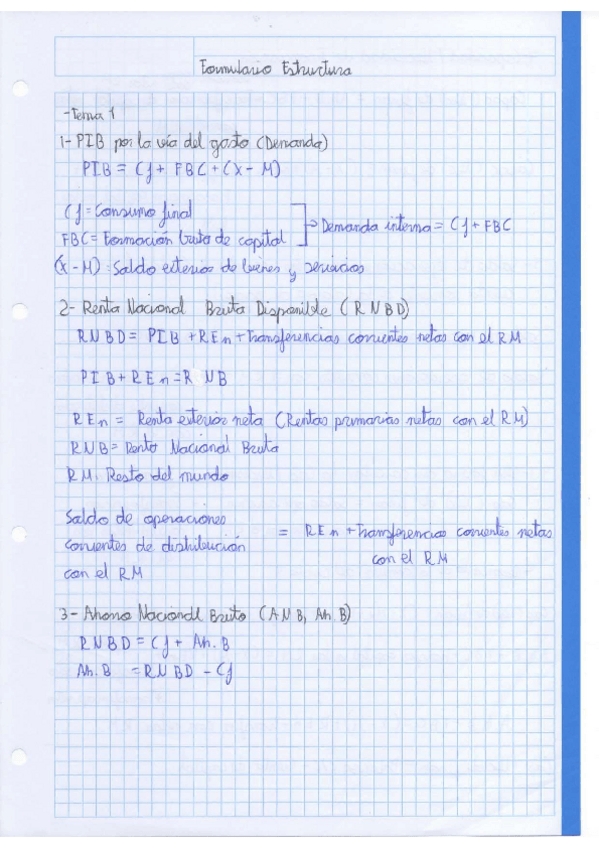 Formulario Estructura
-Tema 1
1- PIB por la vía del gasto (Demanda)
PIB = Cf + FBC + (X - M)
Cf = Consumo final
FBC = Formación bruta de capital
Demanda interna = Cf + FBC
(X - M): Saldo exterior de bienes y servicios
2- Renta Nacional Bruta Disponible (RNBD)
RNBD = PIB + REn + Transferencias corrientes netas con el RM
PIB + REn = RNB
REn = Renta exterior neta (Rentas primarias netas con el RM)
RNB = Renta Nacional Bruta
RM: Resto del mundo
Saldo de operaciones
corrientes de distribución
con el RM
= REn + Transferencias corrientes netas
con el RM
3- Ahorro Nacional Bruto (ANB, Ah.B)
RNBD = Cf + Ah.B
Ah.B = RNBD - Cf